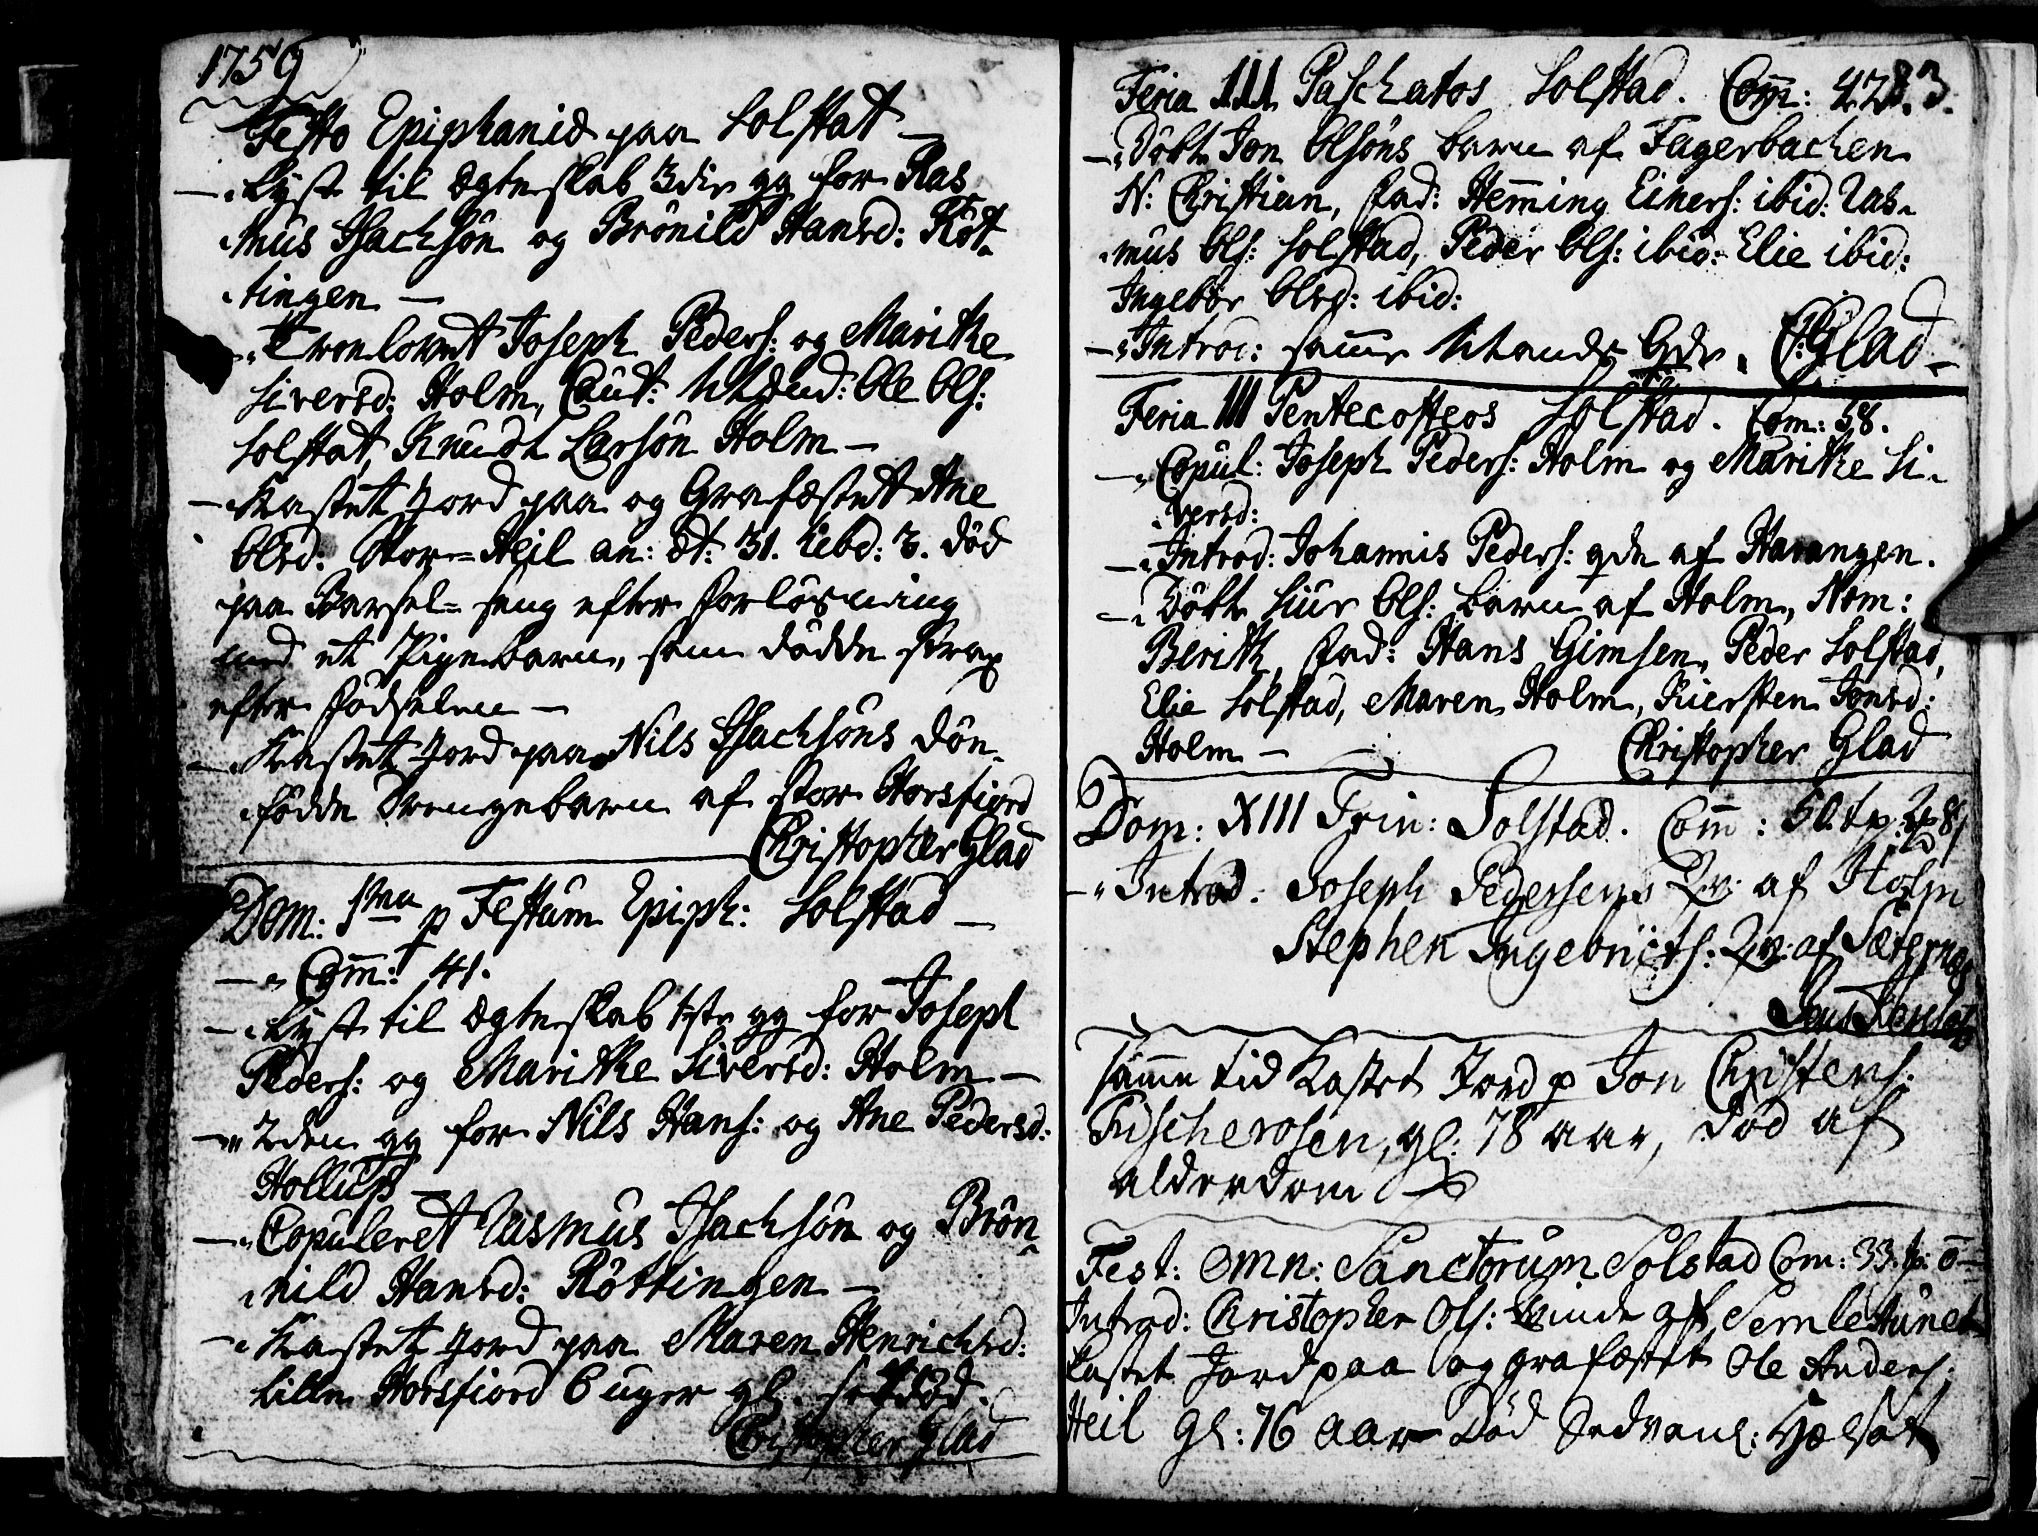 1759
Festo Epiphanid paa Solstat –
– Lyst til Ægteskab 3die gg for Ras-
mus Isachsøn og Brønild Hansd: Røt-
tingen –
– Trolovet Joseph Peders: og Marithe
Siversd: Holm, Caut: Ole Ols:
Solstat, Knudt Larsøn Holm –
– Kastet Jord paa og Grafæstet Ane
Olsd: Stor-Heil an: æt: 31. Død
paa Barsel-seng efter Forløsning
med et Pigebarn, som dødde strax
efter Fødselen –
– Kastet Jord paa Nils Isachsøns død-
fødde Drengebarn af Stor Horsfiord
Christopher Glad
Dom: 1ma p Festum Epiph: Solstad –
– Com: 41.
– Lyst til Ægteskab 1ste gg for Joseph
Peders: og Marithe Siversd: Holm –
– 2den gg for Nils Hans: og Ane Pedersd:
Hollup –
– Copuleret Rasmus Isachsøn og Brøn-
nild Hansd: Røttingen –
– Kastet Jord paa Maren Henrichsd:
Lille Horsfiord 6 uger gl.
Christopher Glad
Feria III Paschatos Solstad. Com: 42. 83.
– Døbt Jon Olsøns barn af Fagerbachen
N: Christian, Fad: Hemming Einers: ibid: Ras-
mus Ols: Solstad, Peder Ols: ibid: Elie ibid:
Ingebor Olsd: ibid:
– Introd: samme Mands Qde. C: Glad –
Feria III Pentecosteos Solstad. Com: 58.
– Copul: Joseph Peders: Holm og Marithe Si-
versd:
– Introd: Johannis Peders: qde af Harangen.
– Døbt Siur Ols: barn af Holm, Nom:
Berith, Fad: Hans Gimsen, Peder Solstad,
Elie Solstad, Maren Holm, Kiersten Jonsd:
Holm – Christopher Glad
Dom: XIII Trin: Solstad. Comm: 50.
– Introd: Joseph Pedersens Qv: af Holm
Stephen Ingebricts: Qv: af
Samme tid Kastet Jord p Jon Christens:
Fischerosen, gl: 78 aar, Død af
alderdom
Fest: Omn: Sanctorum Solstad Com: 33.
Introd: Christopher Ols: Qvinde af Semlestunet
Kastet Jord paa og grafæstet Ole Anders:
Heil gl: 76 Aar Død